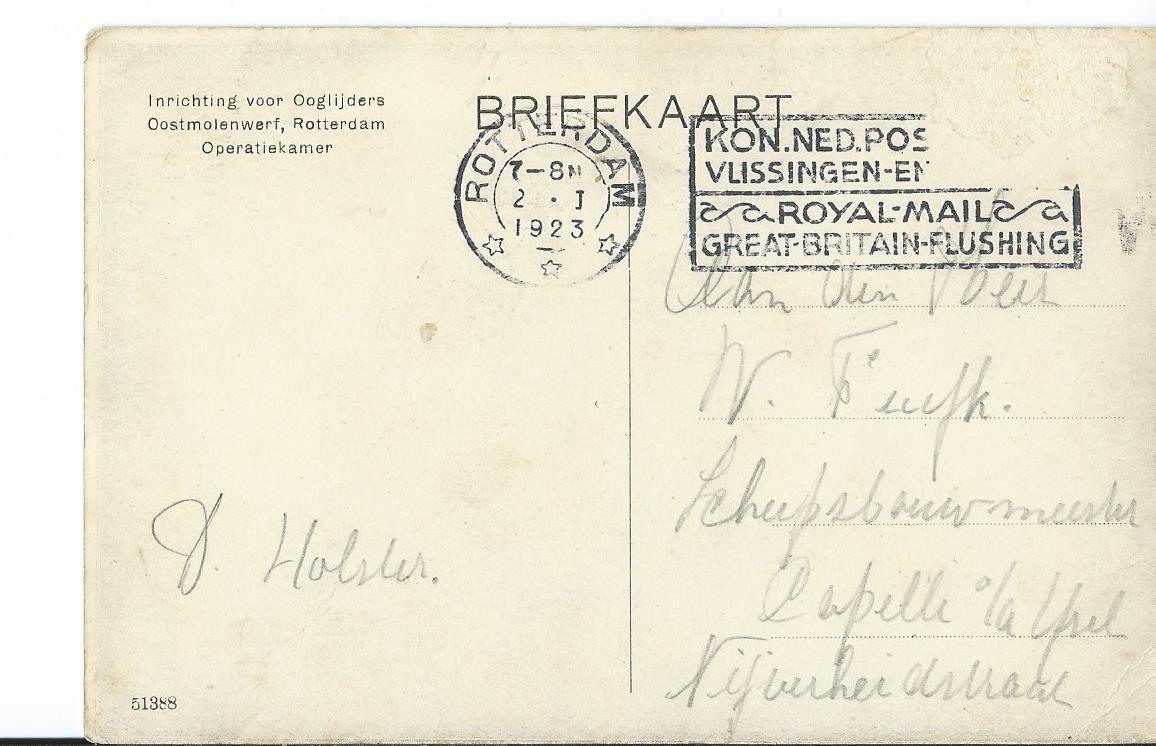 Inrichting voor Ooglijders
Oostmolenwerf, Rotterdam
Operatiekamer
BRIEFKAART
ROTTERDAM
7-8N
2 · I
1923
KON. NED. POS
VLISSINGEN-EN
ROYAL-MAIL
GREAT-BRITAIN-FLUSHING
Aan den Heer
W.
Scheepsbouwmeester
Capelle a/d IJsel
Nijverheidstraat
D. Holster.
51388